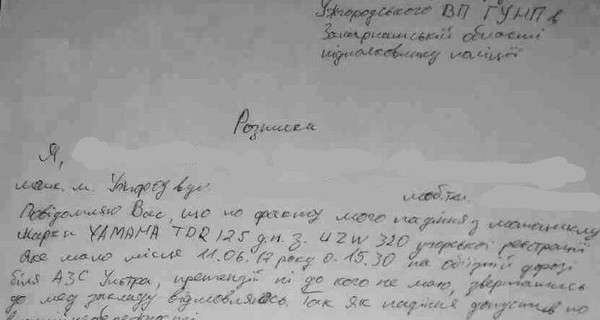 Ужгородського ВП ГУНП в
Закарпатській області
підполковнику поліції
Розписка
Я,
меш. м. Ужгород вул.
моб.тел.
Повідомляю Вас, що по факту мого падіння з мотоциклу
марки YAMAHA TDR 125 д.н.з. UZW 320 угорської реєстрації
яке мало місце 11.06.17 року о 15.30 на об'їзній дорозі
біля АЗС Ультра, претензій ні до кого не маю, звертатись
до мед закладу відмовляюсь. Так як падіння допустив по
власній необережності